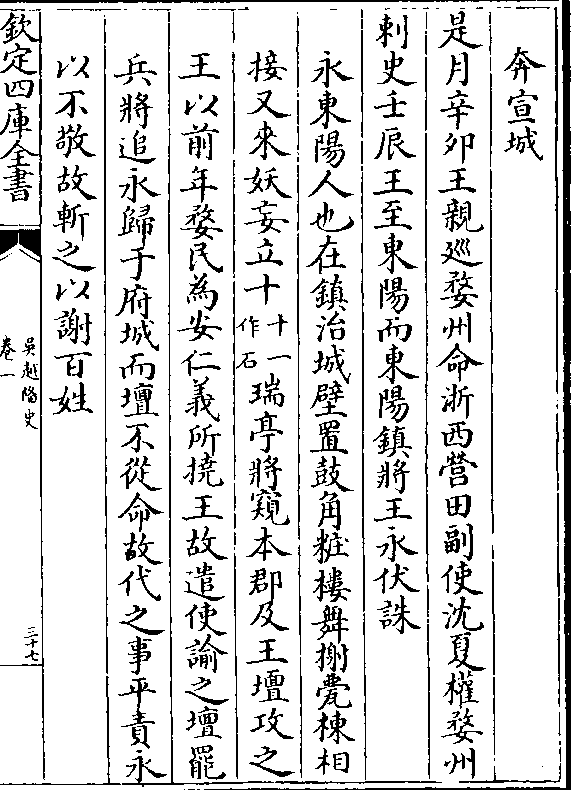 奔宣城
是月辛卯王親廵婺州命浙西營田副使沈夏權婺州
刺史壬辰王至東陽而東陽鎮將王永伏誅
永東陽人也在鎮治城壁置鼓角粧樓舞榭甍棟相
接又来妖妄立十十一作石瑞亭將窺本郡及王壇攻之
王以前年婺民為安仁義所撓王故遣使諭之壇罷
兵將追永歸于府城而壇不從命故代之事平責永
以不敬故斬之以謝百姓
欽定四庫全書
吳越備史
卷一
三十七